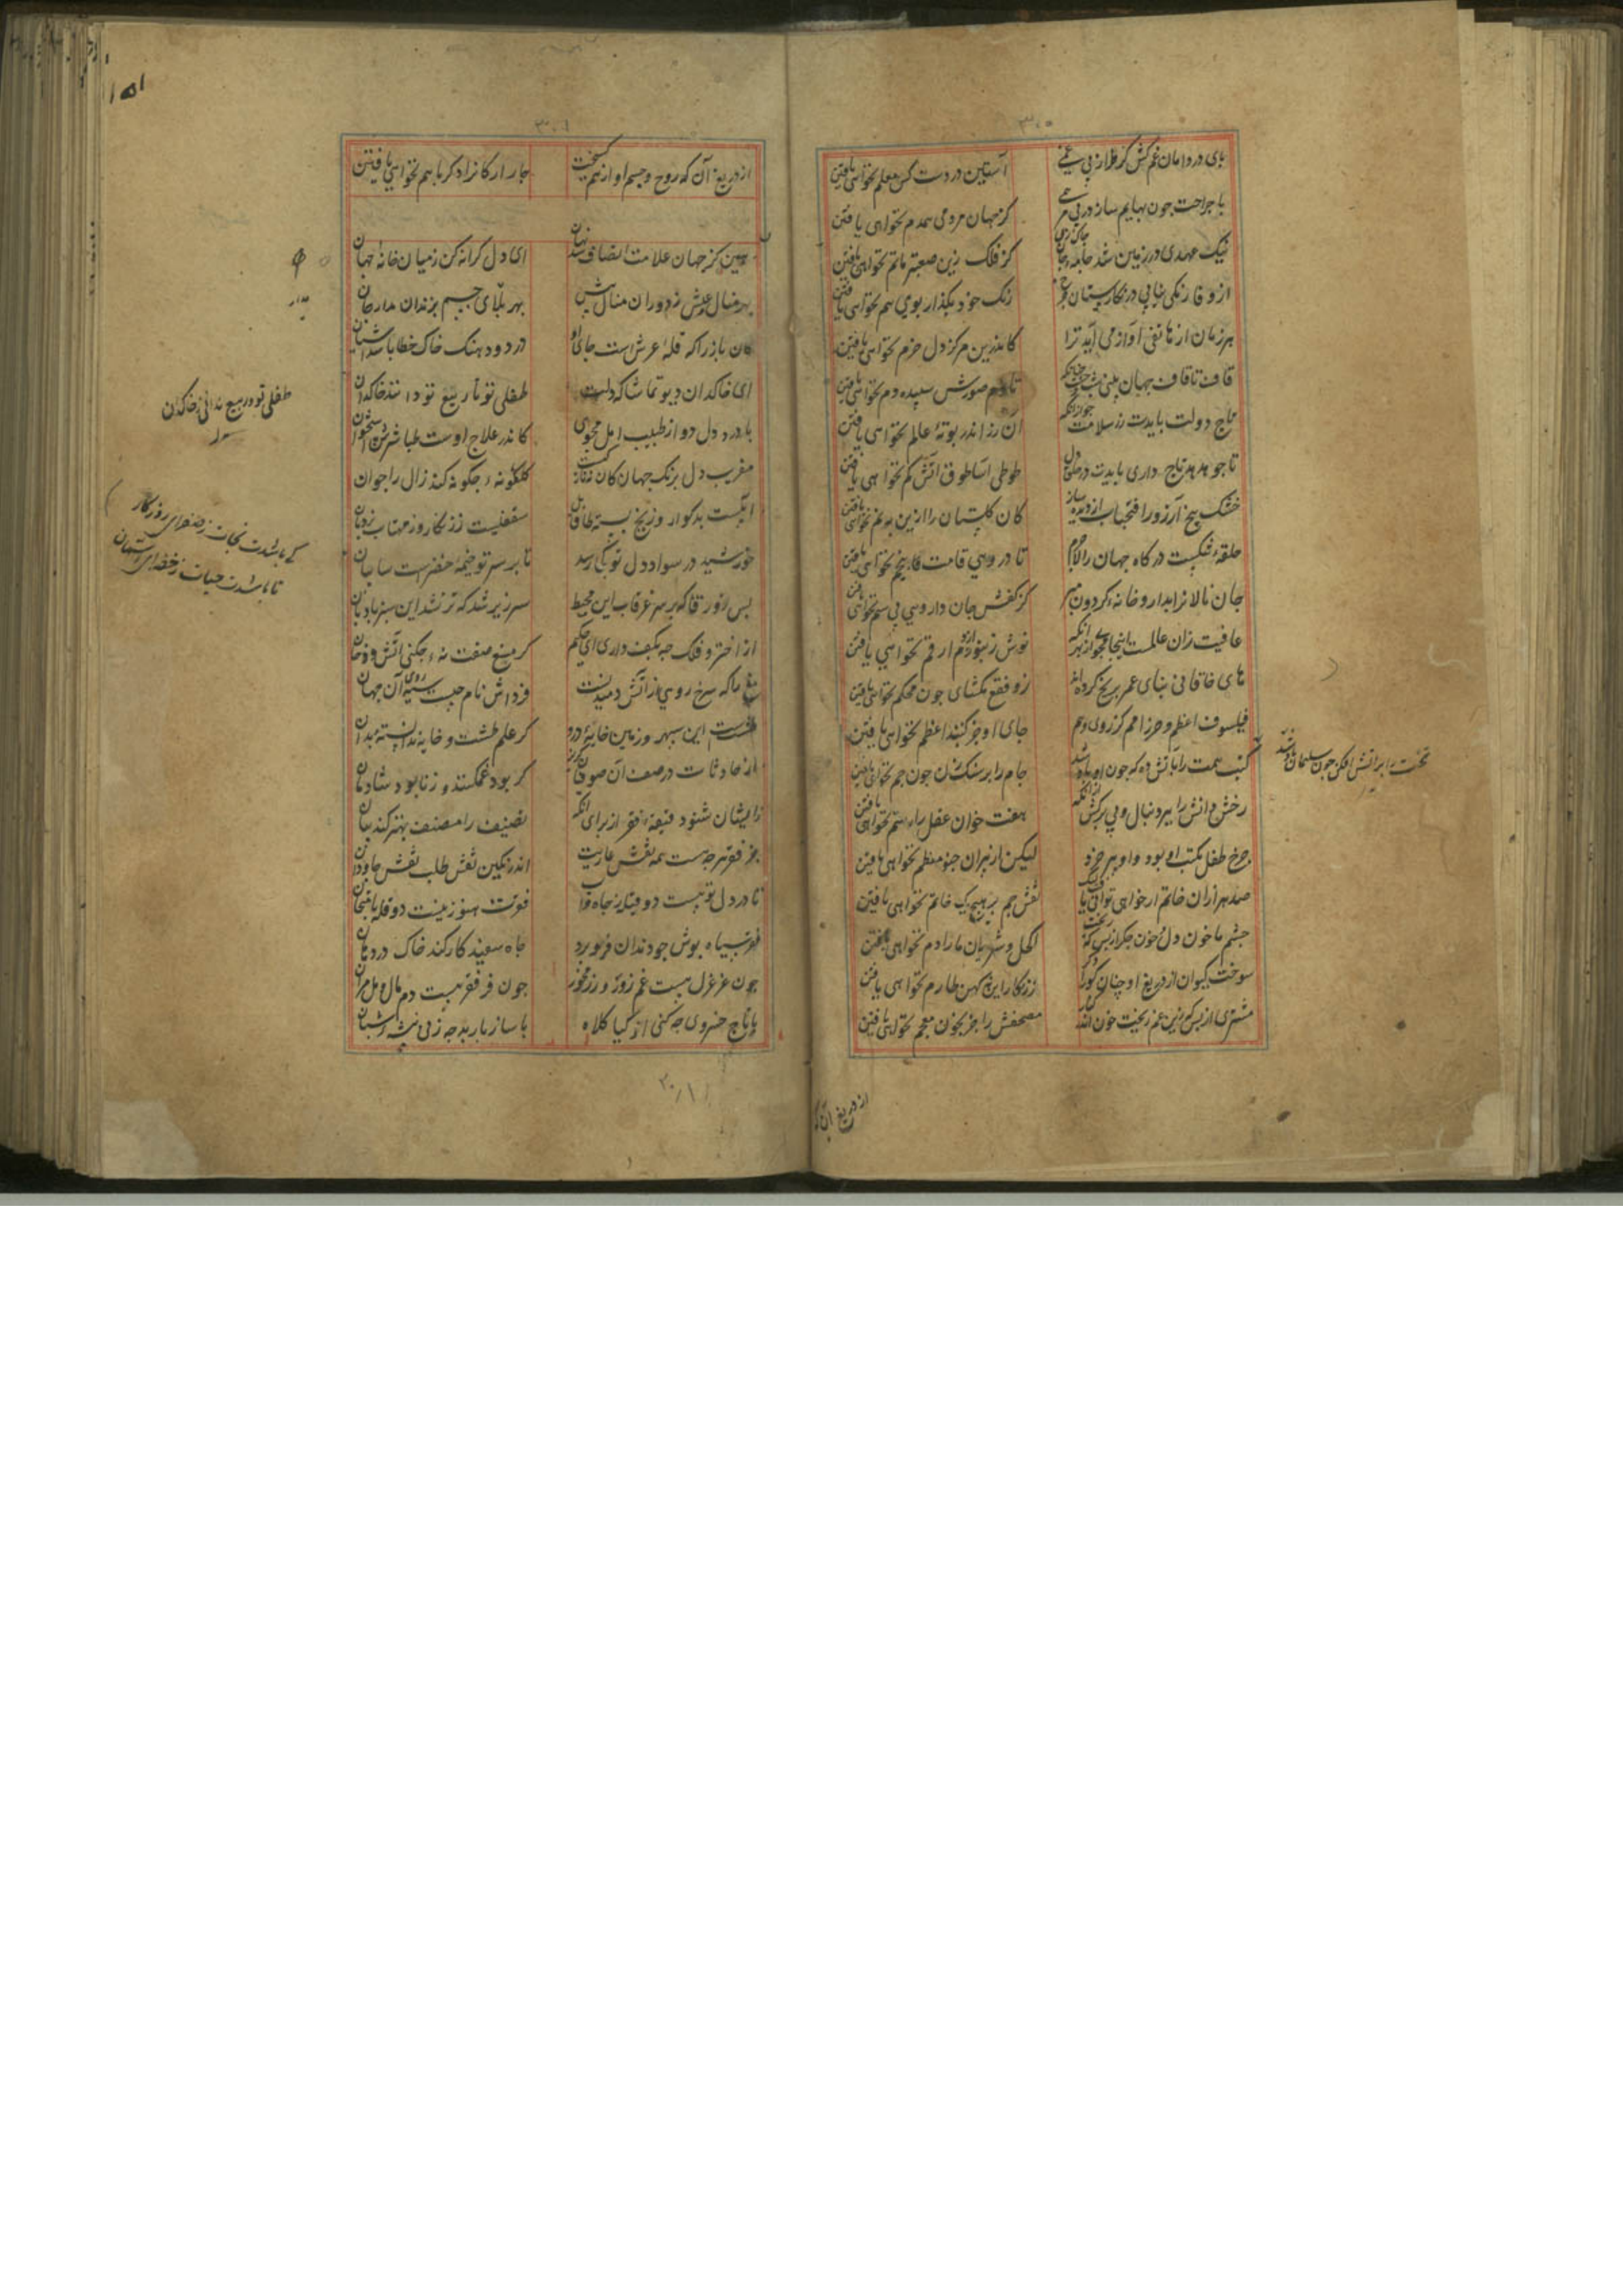 ۳۰۵
پای در دامان غم کش کز طراز بی غمی آستین در دست کس معلم نخواهی یافتن
با جراحت چون بهایم ساز در بی مرهمی کز جهان مردمی همدم نخواهی یافتن
نیک عهدی در زمین شد جامه جان کز فلک زین صعبتر ماتم نخواهی یافتن
از وفا رنگی نیابی در نگارستان چرخ رنگ خود بگذار بوی هم نخواهی یافتن
هر زمان از هاتفی آواز می آید ترا کاندرین مرکز دل خرم نخواهی یافتن
قاف تا قاف جهان بینی صورش سپیده دم نخواهی یافتن
تاج دولت بایدت زر سلامت جو آن زر اندر بوته عالم نخواهی یافتن
تا چو هدهد تاج داری بایدت در حلق دل طوطی آسا طوق آتش کم نخواهی یافتن
خشک بیخ آرزو را فتح باب از دیده ساز کان گلستان را ازین به نم نخواهی یافتن
حلقه تنگست درگاه جهان را لاجرم تا در وی قامت بی خم نخواهی یافتن
جان نالانرا بدارو خانه گردون مبر کز کفش جان داروی بی سم نخواهی یافتن
عافیت زان عالمست اینجا مجوی از بهر آنکه نوش زنبور از دم ارقم نخواهی یافتن
های خاقانی بنای عمر بر یخ کرده اند زو فقع مگشای چون محکم نخواهی یافتن
فیلسوف اعظم و حرز امم کز روی وهم جای او جز گنبد اعظم نخواهی یافتن
گنب همت را بآتش ده که چون او باد شد جام را بر سنگ زن چون جم نخواهی یافتن
تخت را بر آتش افکن چون سلیمان باد شد
رخش دانش را ببر دنبال و پی برکش از آنکه هفت خوان عقل را رستم نخواهی یافتن
چرخ طفل مکتب او بود و او پیر خرد لیکن از پیران چنو معظم نخواهی یافتن
صد هزاران خاتم ار خواهی توان یافت لیک نقش جم بر هیچ یک خاتم نخواهی یافتن
چشم ما خون دل و خون جگر از بس که ریخت اکحل و شریان ما را دم نخواهی یافتن
سوخت کیوان از دریغ او چنان کورا دگر زر نگار این کهن طارم نخواهی یافتن
مشتری از بس کزین غم ریخت خون اندر کنار مصحفش را جز بخون معجم نخواهی یافتن
از دریغ آن که
۳۰۶
۱۵۱
از دریغ آن که روح و جسم او از هم گسیخت چار ارکانرا دگر با هم نخواهی یافتن
بین کز جهان علامت انصاف شد نهان ای دل کرانه کن ز میان خانه جهان
بهر منال عیش ز دوران منال بیش بهر بلای جسم بزندان مدار جان
مدار
کان باز را که قله عرش است جای او در دود هنگ خاک خطا باشد آشیان
ای خاکدان دیو تماشا گه دلت طفلی تو تا ربیع تو دانند خاکدان
طفلی تو و ربیع ندانی ز خاکدان
با درد دل دوا ز طبیب امل مجوی کاندر علاج اوست طباشیرش استخوان
مفریب دل برنگ جهان کان نه تازگیست گلگونه چگونه کند زال را جوان
آبیست بدگوار و ز یخ بسته طاق پل سقفیست زرنگار و ز مهتاب نردبان
کی باشدت نجات ز صفرای روزگار تا باشدت حیات ز خضرای آسمان
خورشید در سواد دل تو کی رسد تا بر سر تو خیمه خضراست سایبان
بس زورقا که بر سر غرقاب این محیط سر زیر شد که تر نشد این سبز بادبان
از اختر و فلک چه بکف داری ای حکیم گر مغ صفت نه چکنی آتش و دخان
مغ را که سرخ رویی از آتش دمیدنست فرداش نام چیست سیه روی آن جهان
طشتست این سپهر و زمین خایه درو گر علم طشت و خایه ندانسته بدان
از حادثات در صف آن صوفیان گریز کز بود غمگنند و ز نابود شادمان
زایشان شنود قیقه فقر از برای آنکه تصنیف را مصنف بهتر کند بیان
جز فقر هر چه هست همه نقش عاریت اندر نگین نقش طلب نقش جاودان
تا در دل تو هست دو قبله ز جاه و آب فقرت هنوز نیست دو قله بامتحان
فقر سیاه پوش چو دندان فرو برد جاه سفید کار کند خاک در دهان
چون عز عزل هست غم زور و زر مخور چون فر فقر هست دم مال و مل مران
با تاج خسروی چه کنی از گیا کلاه با ساز باربد چه زنی پیشه شبان
۲۰/۱